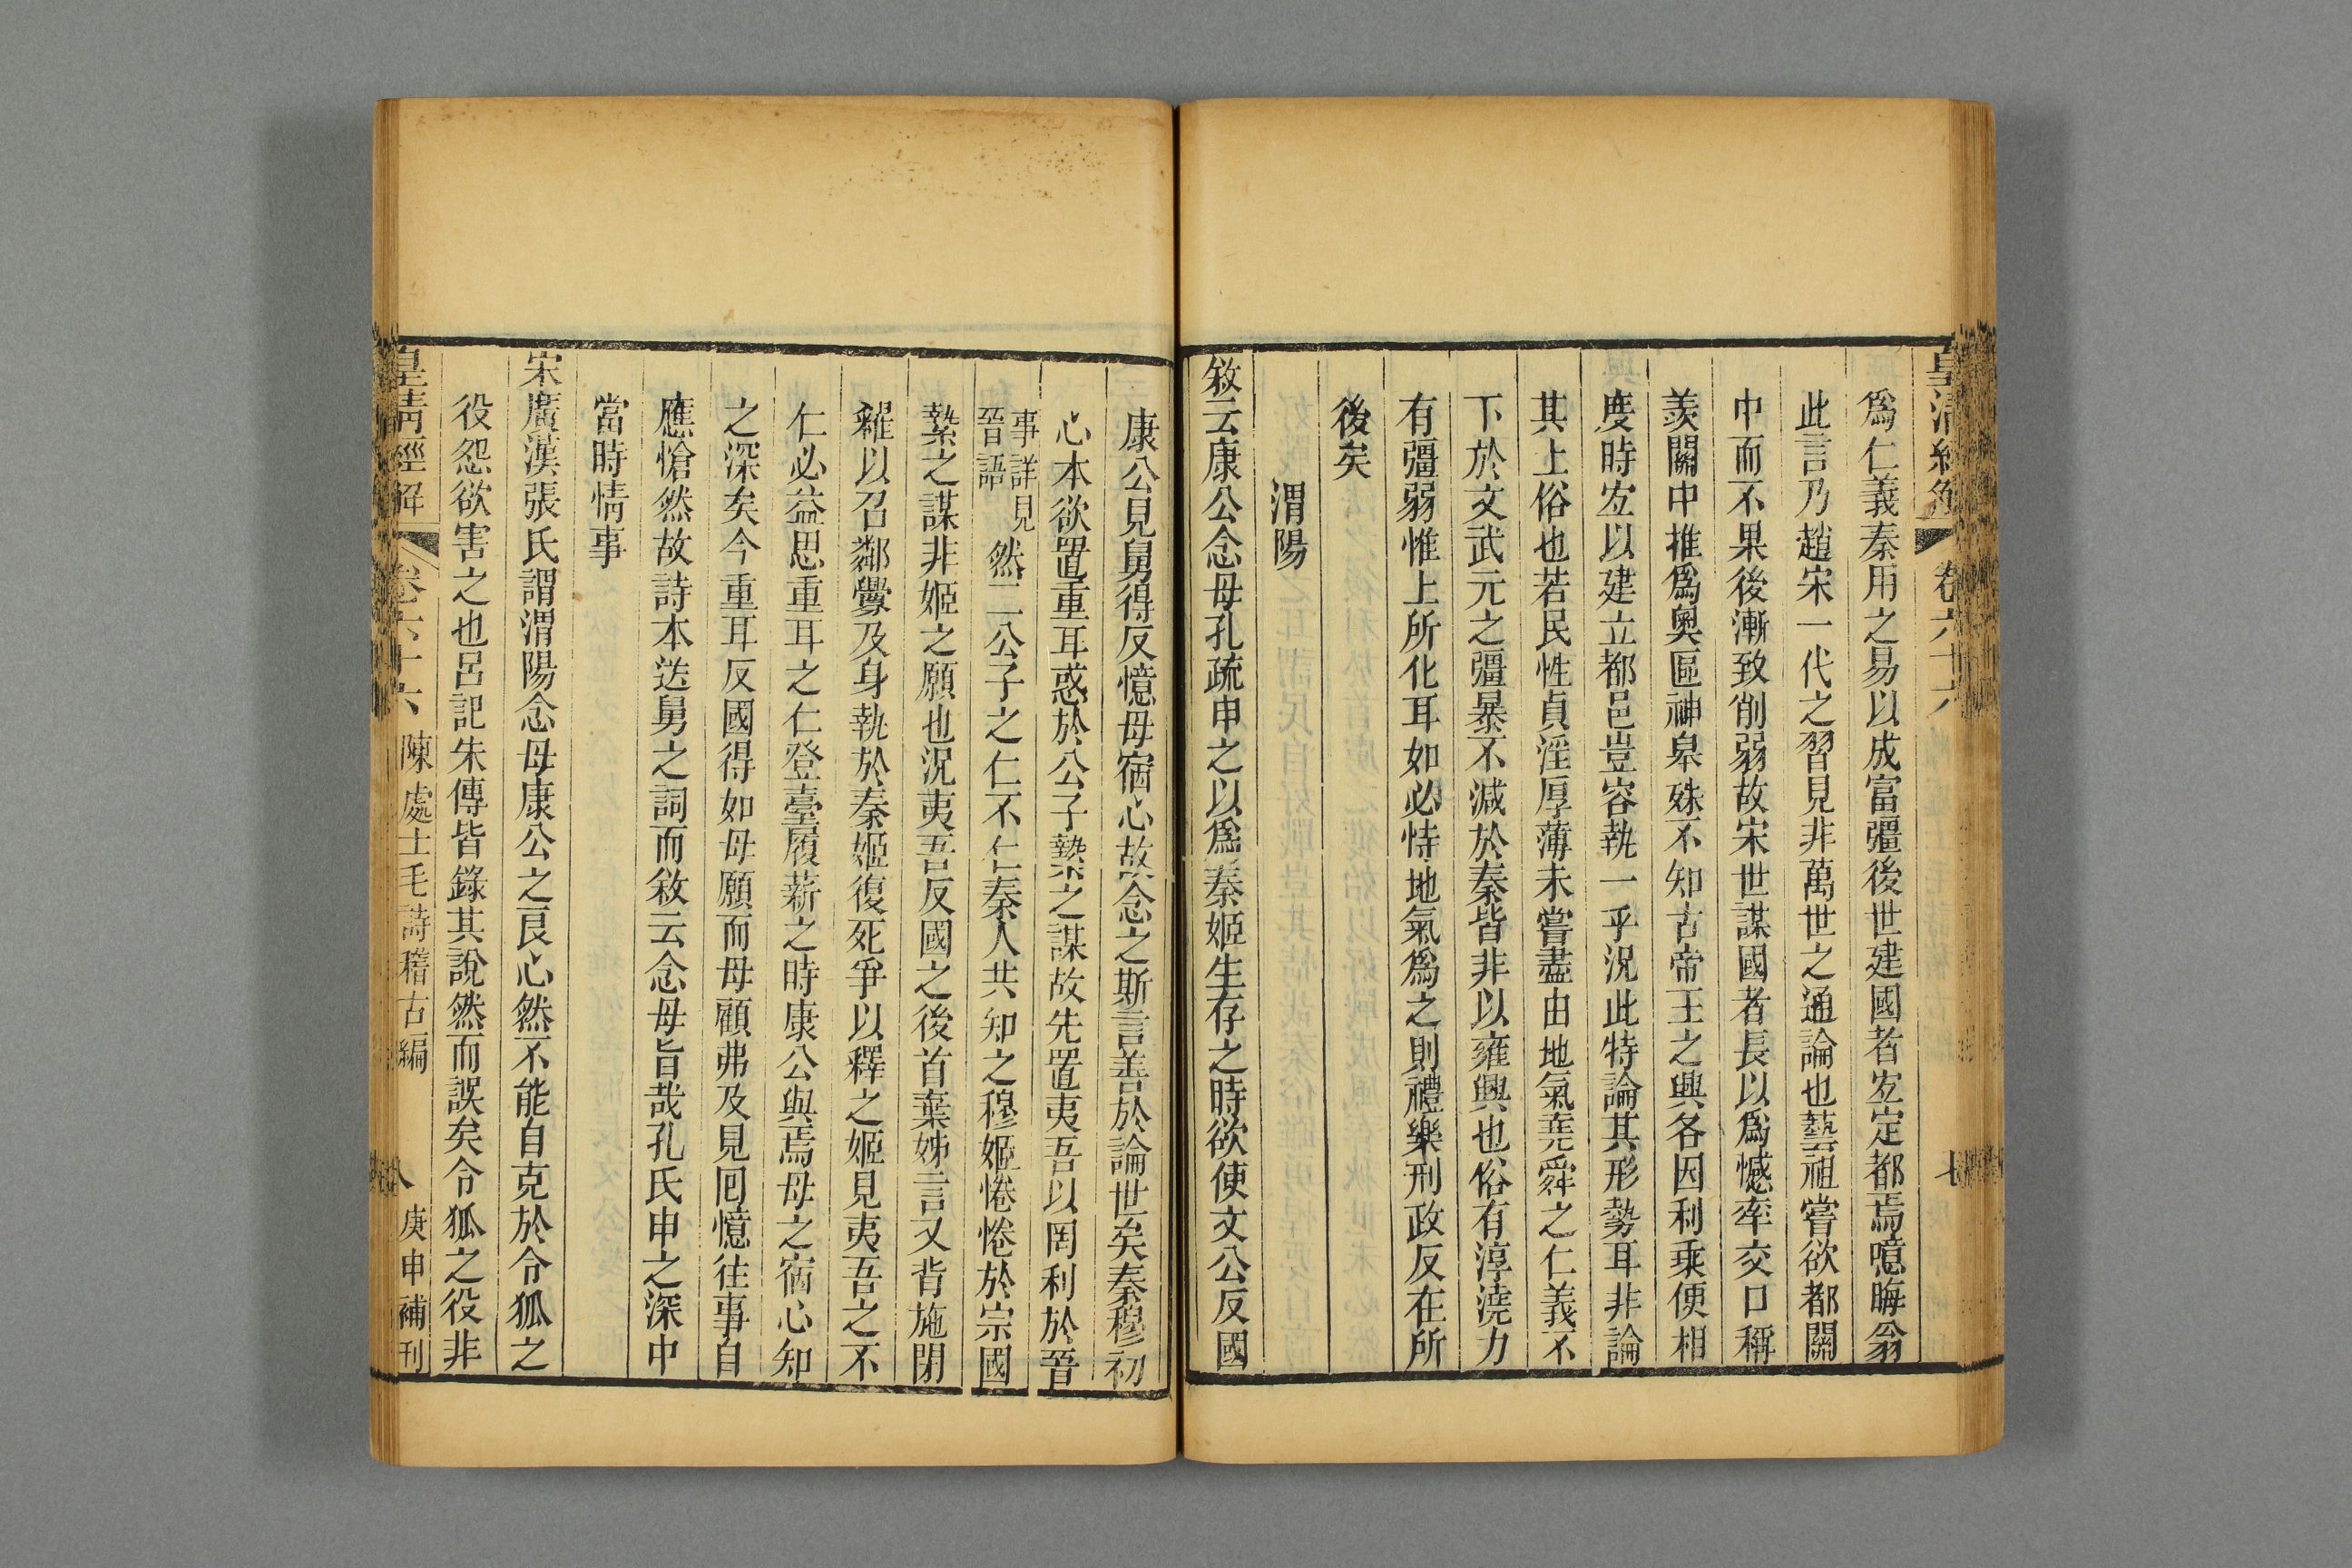 皇清經解 卷六十六 七
爲仁義秦用之易以成富彊後世建國者宐定都焉噫晦翁
此言乃趙宋一代之習見非萬世之通論也藝祖嘗欲都關
中而不果後漸致削弱故宋世謀國者長以爲憾率交口稱
羨關中推爲奧區神皋殊不知古帝王之興各因利乘便相
度時宐以建立都邑豈容執一乎況此特論其形勢耳非論
其上俗也若民性貞淫厚薄未嘗盡由地氣堯舜之仁義不
下於文武元之彊暴不減於秦皆非以雍興也俗有淳澆力
有彊弱惟上所化耳如必恃地氣爲之則禮樂刑政反在所
後矣
渭陽
敘云康公念母孔疏申之以爲秦姬生存之時欲使文公反國
康公見舅得反憶母宿心故念之斯言善於論世矣秦穆初
心本欲置重耳惑於公子縶之謀故先置夷吾以罔利於晉
事詳見晉語然二公子之仁不仁秦人共知之穆姬惓惓於宗國
縶之謀非姬之願也況夷吾反國之後首棄姊言又背施閉
糴以召鄰釁及身執於秦姬復死爭以釋之姬見夷吾之不
仁必益思重耳之仁登臺履薪之時康公與焉母之宿心知
之深矣今重耳反國得如母願而母顧弗及見囘憶往事自
應愴然故詩本送舅之詞而敘云念母旨哉孔氏申之深中
當時情事
宋廣漢張氏謂渭陽念母康公之良心然不能自克於令狐之
役怨欲害之也呂記朱傳皆錄其說然而誤矣令狐之役非
皇清經解 卷六十六 陳處士毛詩稽古編 八 庚申補刊